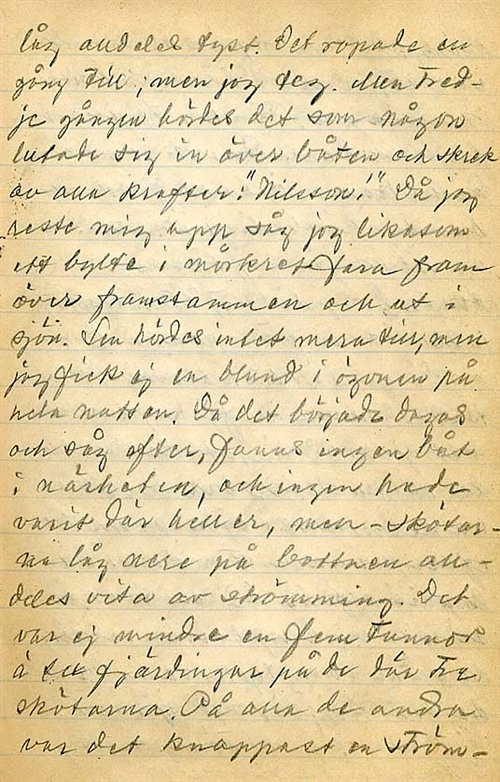 låg alldeles tyst. Det ropade en
gång till; men jag teg. Men tred-
je gången hördes det som någon
lutade sig in över båten och skrek
av alla krafter: "Nilsson!" Då jag
reste mig upp såg jag likasom
ett bylte i mörkret fara fram
över framstammen och ut i
sjön. Sen hördes intet mera till, men
jag fick ej en blund i ögonen på
hela natten. Då det började dagas
och såg efter, fanns ingen båt
i närheten, och ingen hade
varit där heller, men - skötar-
na låg nere på bottnen all-
deles vita av strömming. Det
var ej mindre en fem tunnor
à fjärdingar på de där tre
skötarna. På alla de andra
var det knappast en ström-